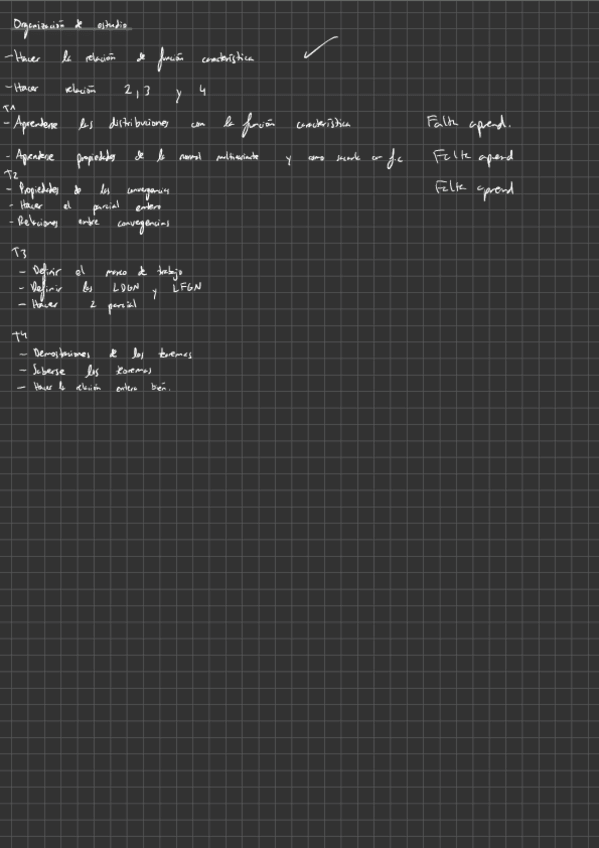 Organización de estudio
- Hacer la relación de función característica ✓
- Hacer relación 2, 3 y 4
T1
- Aprenderse las distribuciones con la función característica Falta aprend.
- Aprenderse propiedades de la normal multivariante y como sacarla con f.c Falta aprend
T2
- Propiedades de las convergencias Falta aprend
- Hacer el parcial entero
- Relaciones entre convergencias
T3
- Definir el marco de trabajo
- Definir las LDGN y LFGN
- Hacer 2 parcial
T4
- Demostraciones de los teoremas
- Saberse los teoremas
- Hacer la relación entera bien.